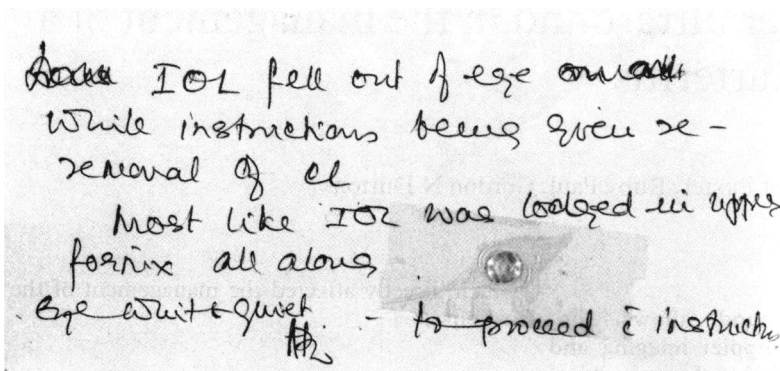 IOL fell out of eye
While instructions being given re-
removal of CL
Most like IOL was lodged in upper
fornix all along
Eye white & quiet - to proceed c̄ instructs